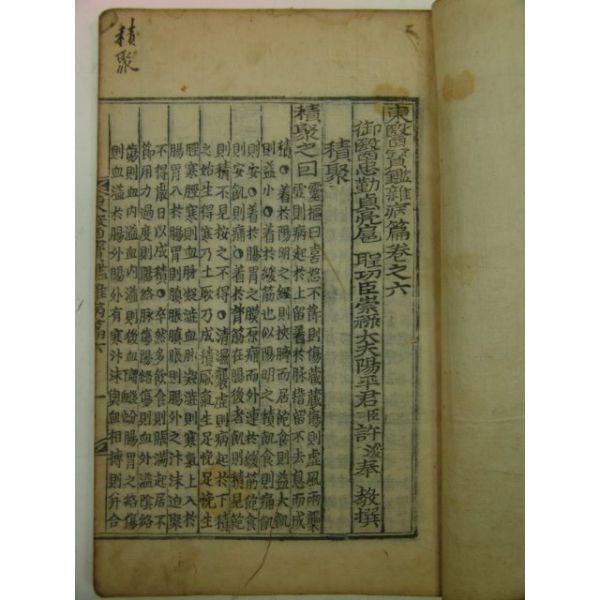 積聚
東醫寶鑑雜病篇卷之六
御醫忠勤貞亮扈 聖功臣崇祿大夫陽平君臣許浚奉 敎撰
積聚
積聚之因
靈樞曰喜怒不節則傷藏藏傷則虛風雨襲
虛則病起於上留着於脉稽留不去息而成
積●着於陽明之經則挾臍而居飽食則益大飢
則益小●着於緩筋也似陽明之積飽食則痛飢
則安●着於腸胃之膜原痛而外連於緩筋飽食
則安飢則痛●着於膂筋在腸後者飢則積見飽
則積不見按之不得●淸濕襲虛則病起於下積
之始生得寒乃生厥乃成積厥氣生足悗足悗生
脛寒脛寒則血脉凝澁則寒氣上入於
腸胃入於腸胃則䐜脹䐜脹則腸外之汁沫迫聚
不得散日以成積●卒然多飮食則脹滿起居不
節用力過度則陽絡脉傷陽絡傷則血外溢陰絡
傷則血內溢血內溢則後血腸胃之絡傷
則血溢於腸外腸外有寒汁沫與血相搏則幷合
東醫寶鑑 雜病篇六 一